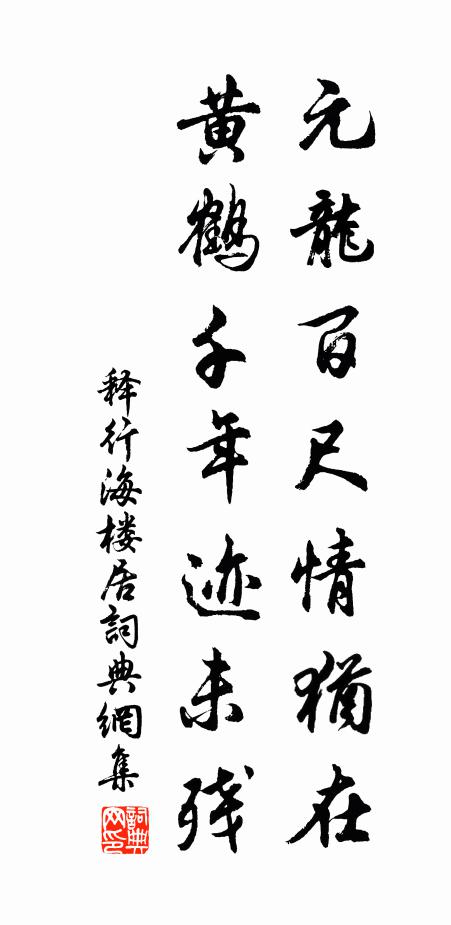 元龍百尺情猶在
黄鶴千年迹未残
释行海楼居詞典網集
詞典网印